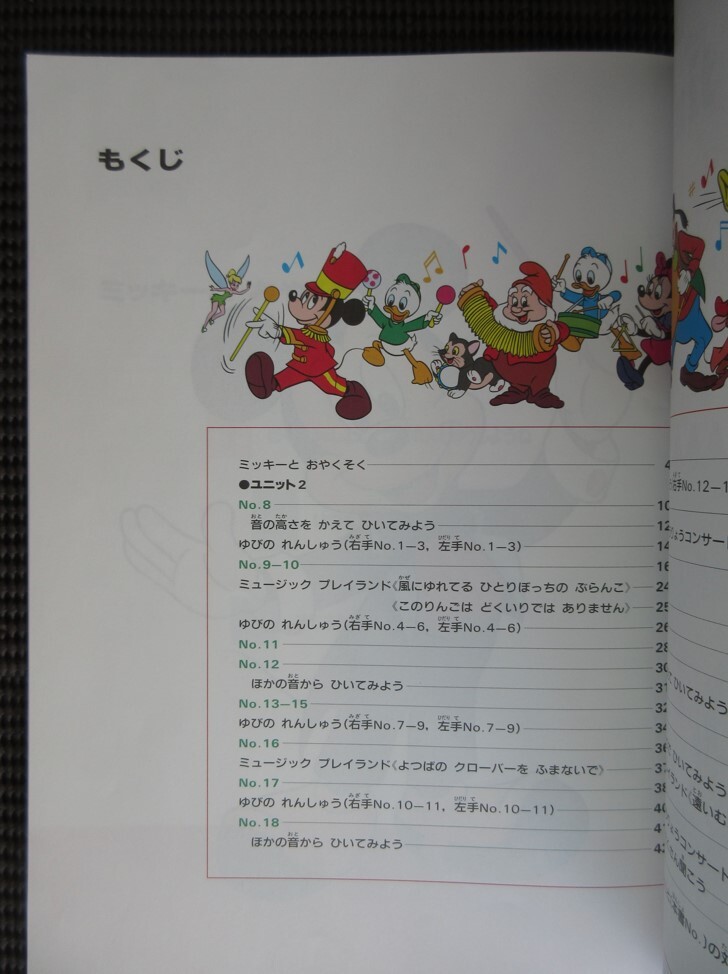 もくじ
ミッキーと おやくそく
●ユニット2
No.8 10
音の高さを かえて ひいてみよう 12
ゆびの れんしゅう(右手No.1−3, 左手No.1−3) 14
No.9−10 16
ミュージック プレイランド《風にゆれてる ひとりぼっちの ぶらんこ》 24
《このりんごは どくいりでは ありません》 25
ゆびの れんしゅう(右手No.4−6, 左手No.4−6) 26
No.11 28
No.12 30
ほかの音から ひいてみよう 31
No.13−15 32
ゆびの れんしゅう(右手No.7−9, 左手No.7−9) 34
No.16 36
ミュージック プレイランド《よつばの クローバーを ふまないで》 37
No.17 38
ゆびの れんしゅう(右手No.10−11, 左手No.10−11) 40
No.18 41
ほかの音から ひいてみよう 42
右手No.12−1
ょうコンサート
ひいてみよう
ひいてみよう
ランド《遠いむ
ょうコンサート
さん聞こう
No.)の